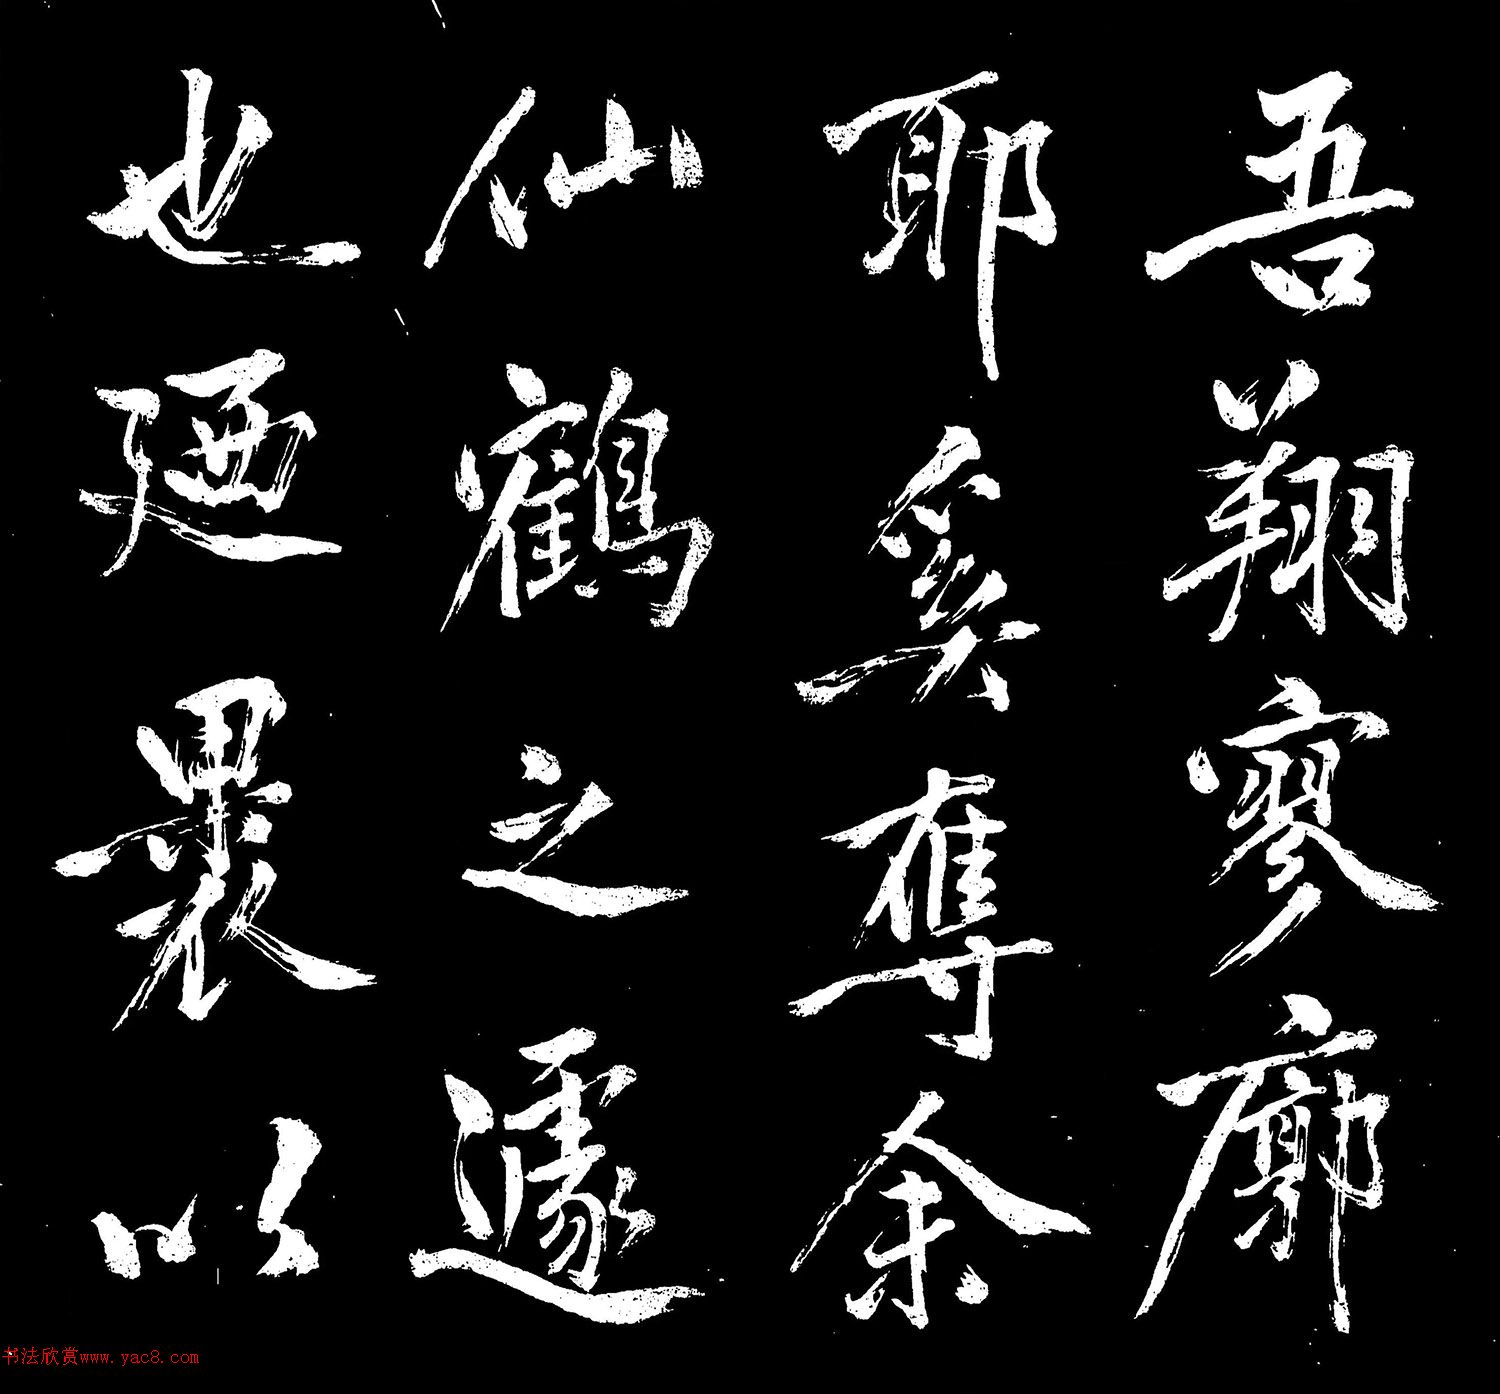 吾翔寥廓
耶奚奪余
仙鶴之遽
也廼裹以
书法欣赏www.yac8.com